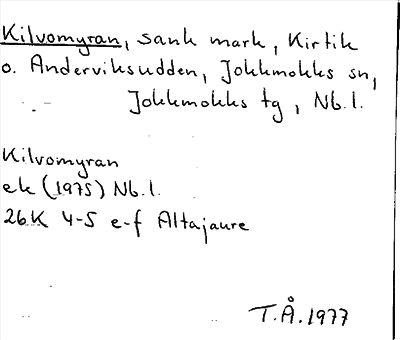 Kilvomyran, sank mark, Kirtik
o. Anderviksudden, Jokkmokks sn,
Jokkmokks tg, Nb.l.
Kilvomyran
ek (1975) Nb.l.
26K 4-5 e-f Altajaure
T.Å. 1977